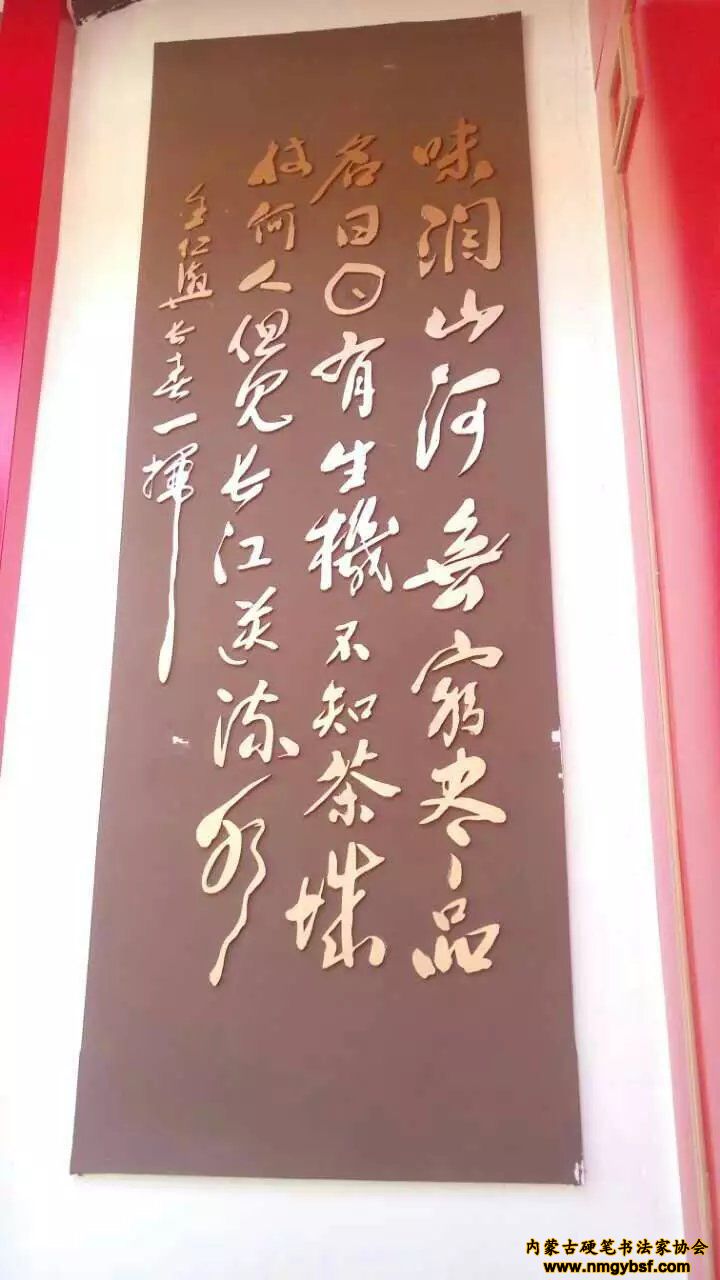 味润山河無窮尽品
名日日有生機不知茶城
待何人但见长江送流水
仁 长春一揮
内蒙古硬笔书法家协会
www.nmgybsf.com